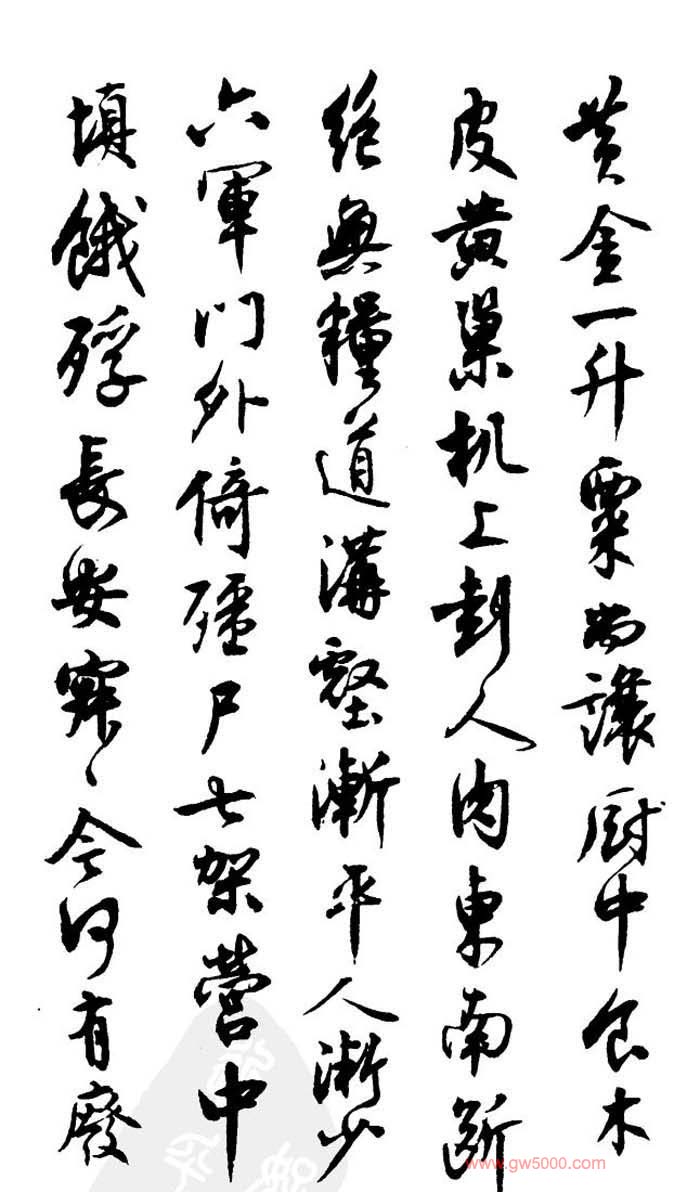 黄金一升粟尚讓厨中食木
皮黄巢机上刲人肉東南断
絶無糧道溝壑漸平人漸少
六軍門外倚殭尸七架營中
填餓殍長安寂々今何有廢
www.gw5000.com